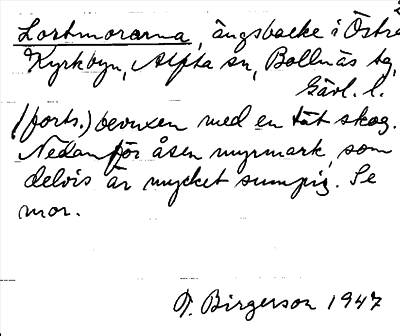 2
Lortmorarna, ängsbacke i Östra
Kyrkbyn, Alfta sn, Bollnäs tg,
Gävl. l.
(forts.) bevuxen med en tät skog.
Nedanför åsen myrmark, som
delvis är mycket sumpig. Se
mor.
T. Birgerson 1947